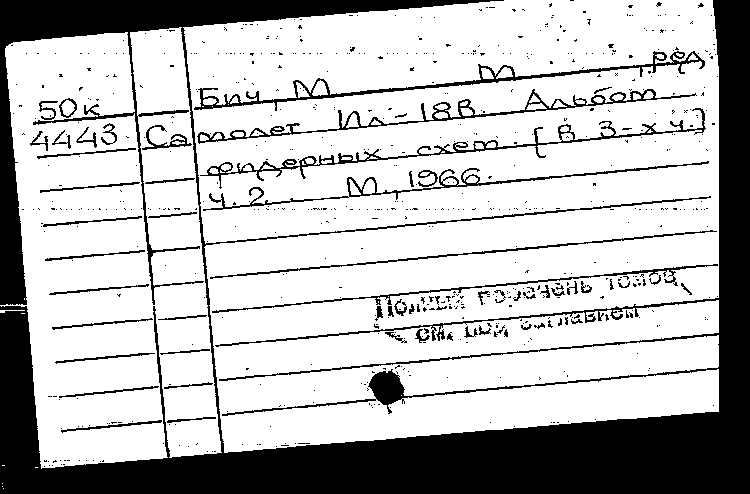 Бич, М М , ред.
50к
4443 Самолет Ил-18В. Альбом
фидерных схем. [В 3-х ч.].
Ч. 2. М., 1966.
Полный перечень томов
см. под заглавием